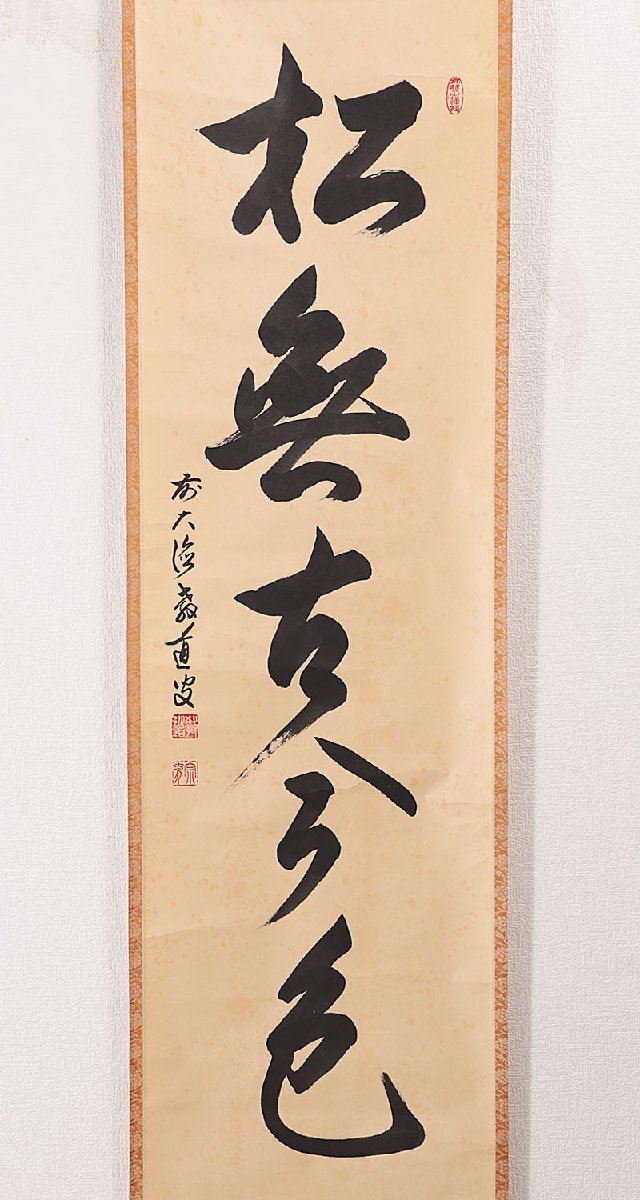 松無古今色
前大徳教道叟